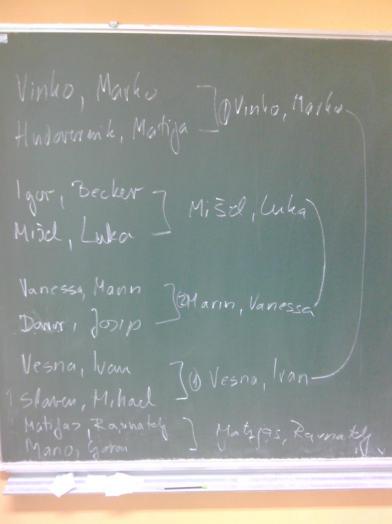 Vinko, Marko
Matija
① Vinko, Marko
Igor, Becker
Mišel, Luka
Mišel, Luka
Vanessa, Mann
Davor, Josip
Marin, Vanessa
Vesna, Ivan
Slaven, Mihael
Vesna, Ivan
Matijas,
Mario, Goran
Matijas,